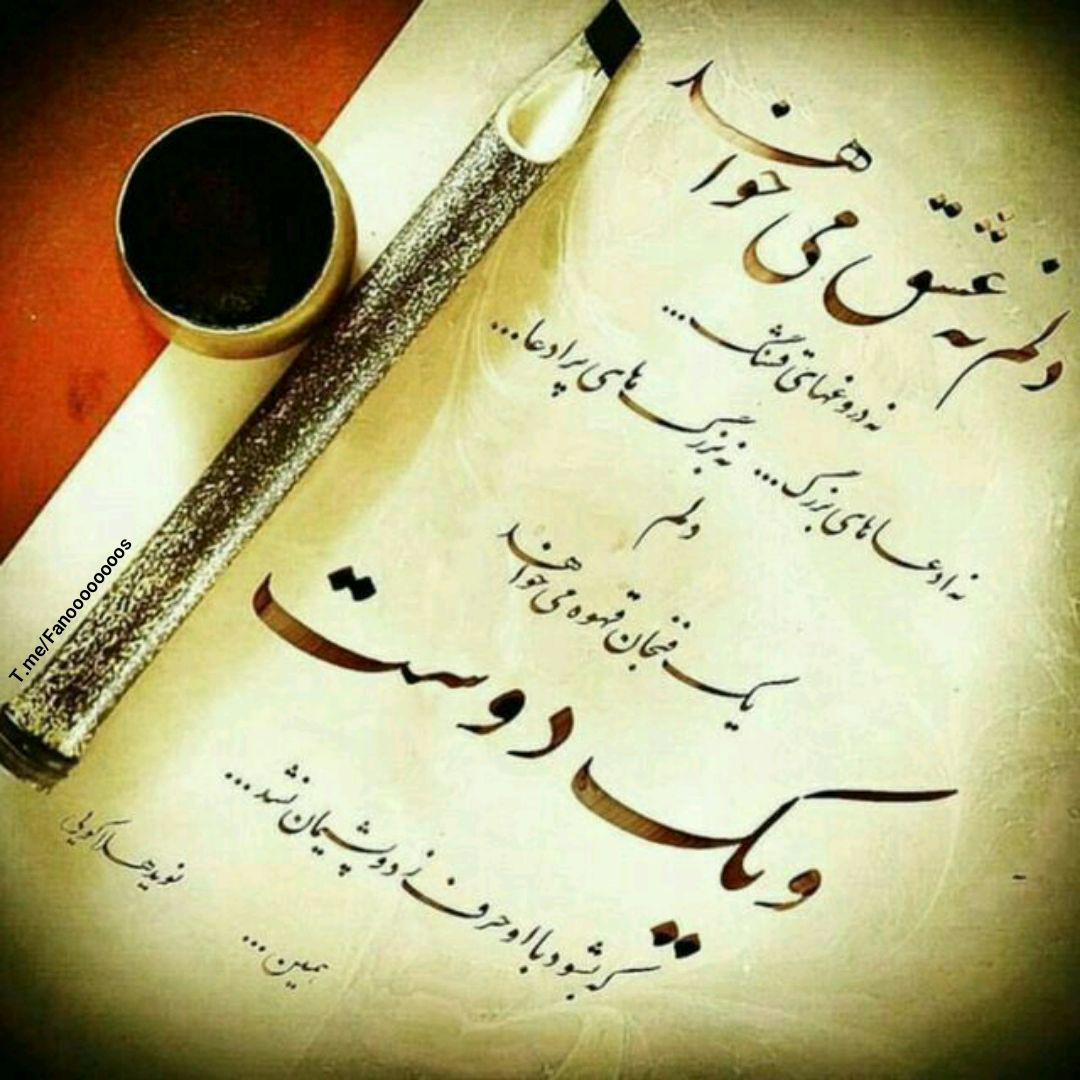 دلم نه عشق می خواهد
نه دروغهای قشنگ...
نه ادعا های بزرگ... نه بزرگ های پر ادعا...
دلم
یک فنجان قهوه می خواهد
و یک دوست
که بشود با او حرف زد و پشیمان نشد...
همین...
نوید هلاکویی
T.me/Fanoooooooos